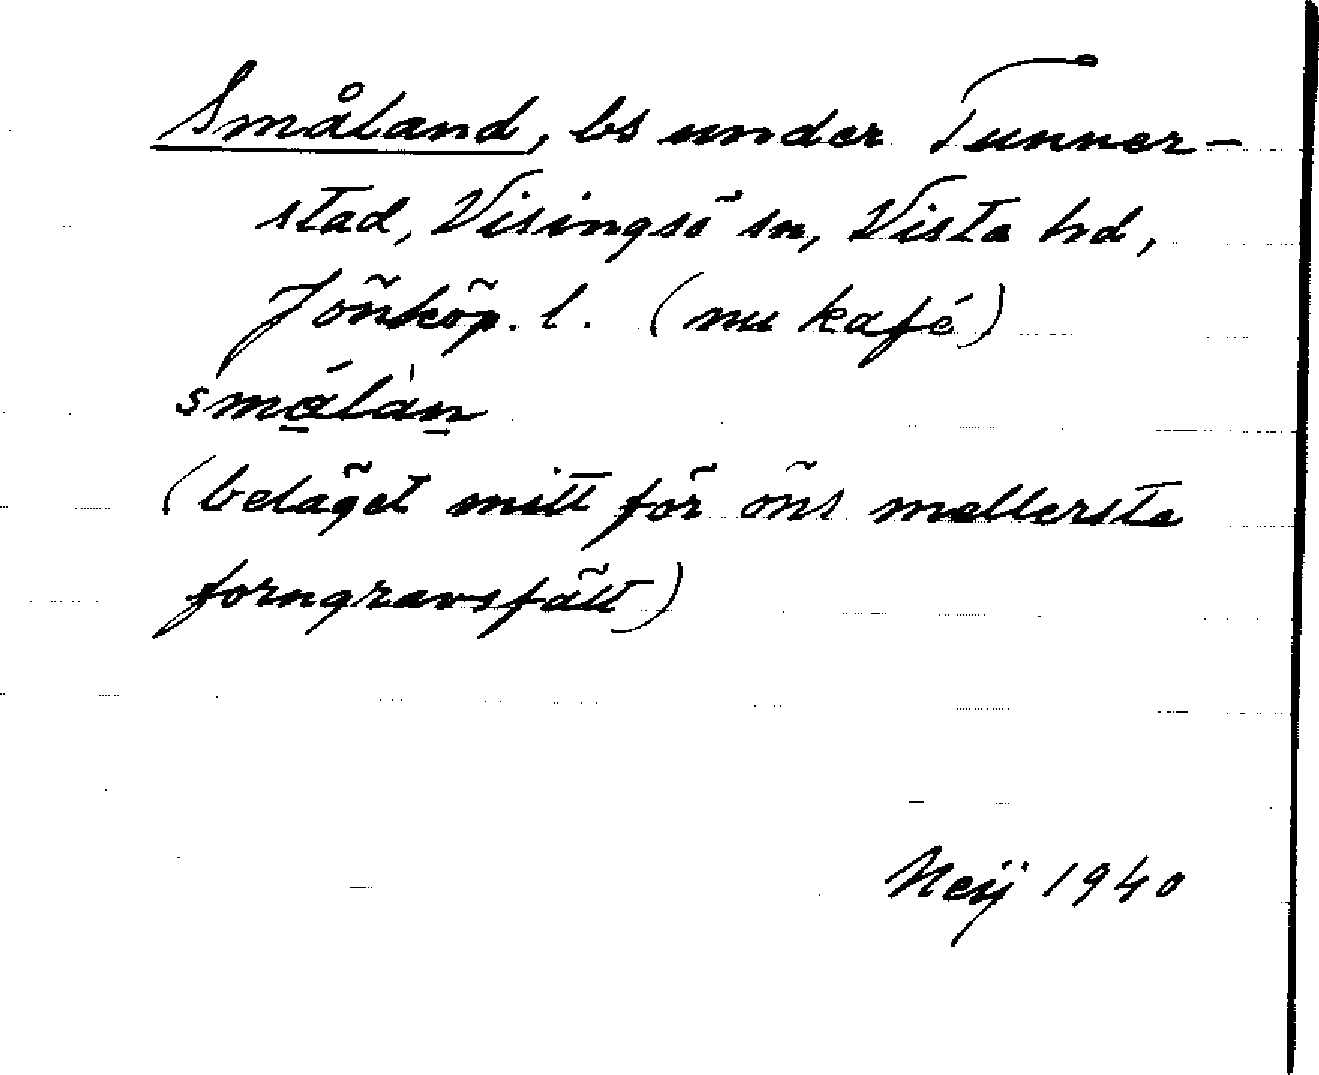 Småland, bs under Tunner-
stad, Visingsö sn, Vista hd,
Jönköp. l. (nu kafé)
smálàn
(beläget mitt för öns mellersta
forngravsfält)
Neij 1940